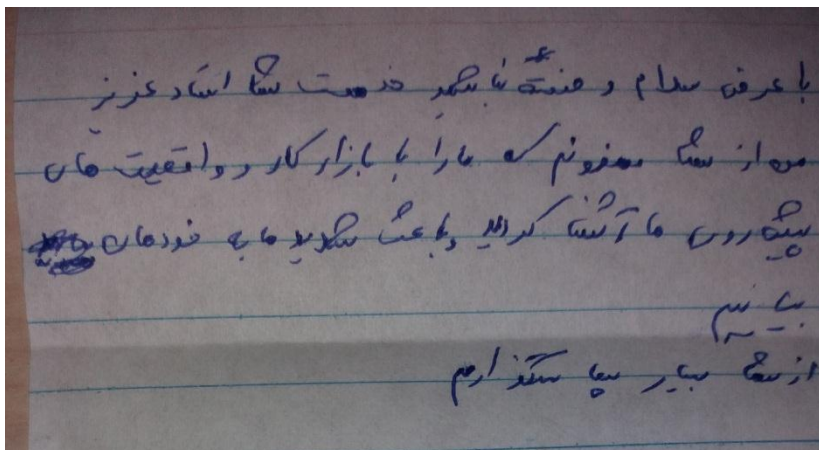 با عرض سلام و خسته نباشید خدمت شما استاد عزیز
من از شما ممنونم که ما را با بازار کار و واقعیت های
پیش روی ما آشنا کردید و باعث شدید ما به خودمان
بیاییم
از شما بسیار سپاسگذارم